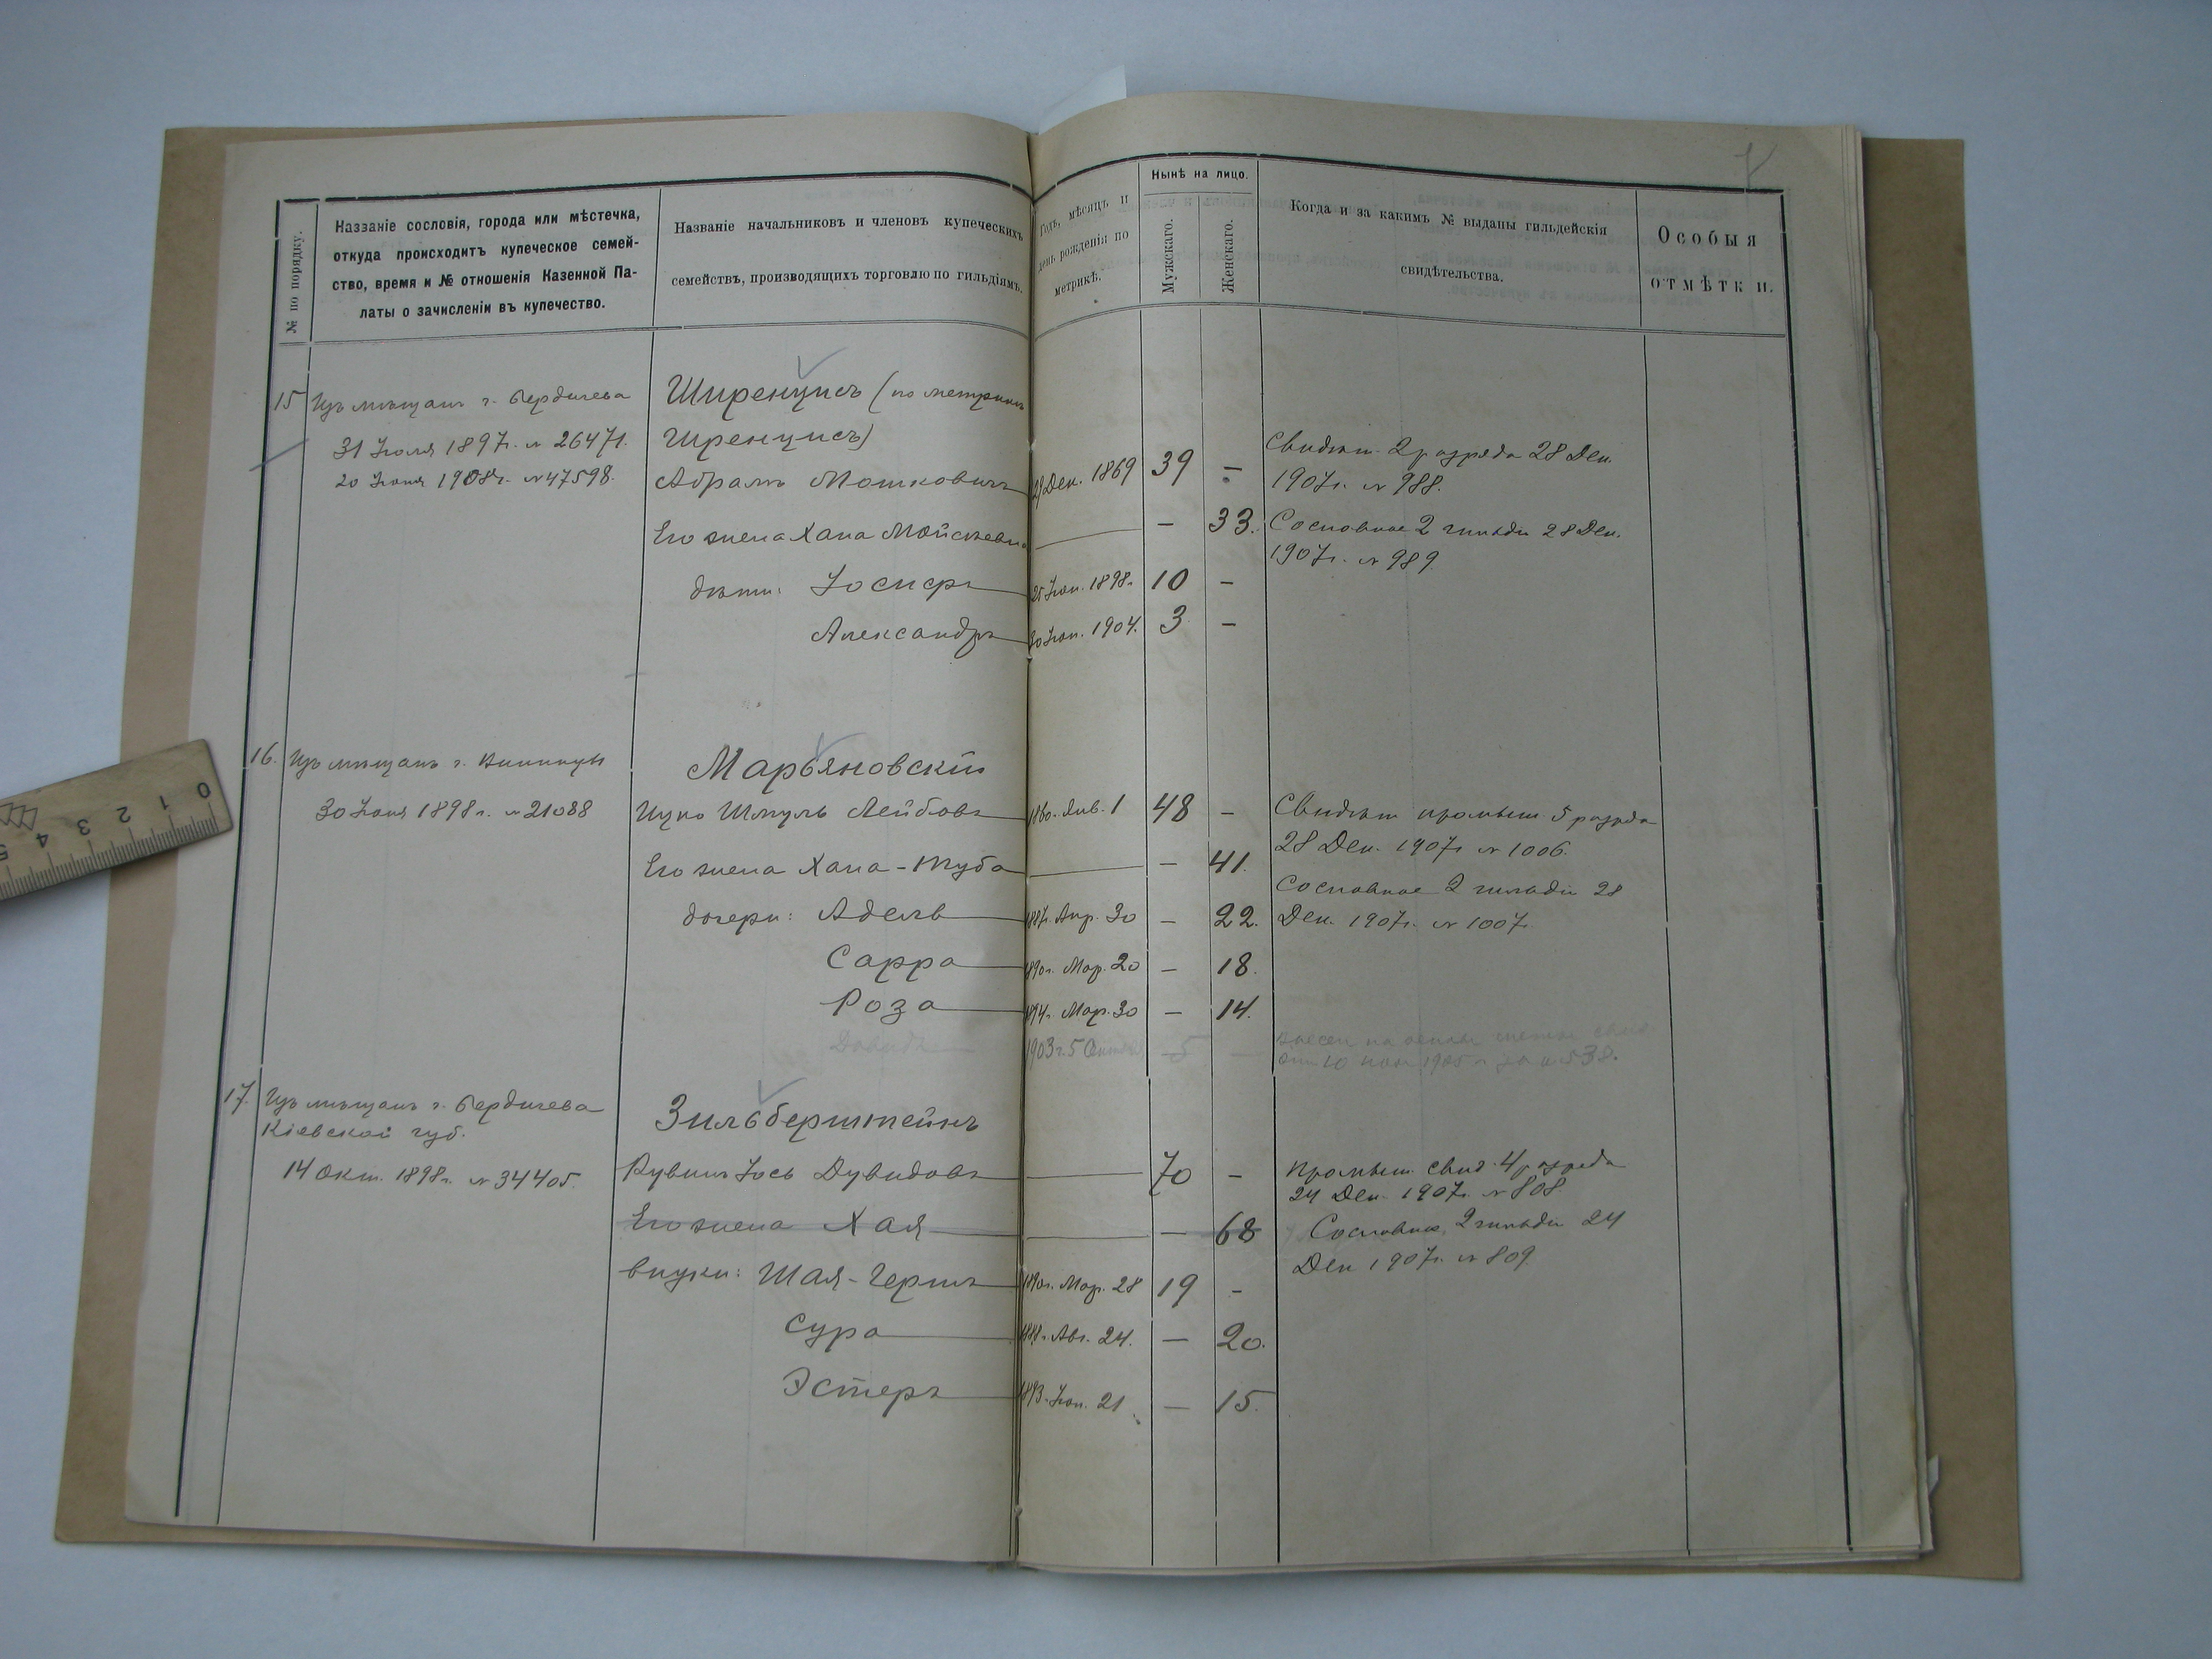 № по порядку.
Названіе сословія, города или мѣстечка,
откуда происходитъ купеческое семей-
ство, время и № отношенія Казенной Па-
латы о зачисленіи въ купечество.
Названіе начальниковъ и членовъ купеческихъ
семействъ, производящихъ торговлю по гильдіямъ.
Годъ, мѣсяцъ и
день рожденія по
метрикѣ.
Нынѣ на лицо.
Мужскаго.
Женскаго.
Когда и за какимъ № выданы гильдейскія
свидѣтельства.
Особыя
отмѣтки.
15 Изъ мѣщанъ г. Бердичева
31 Іюля 1897г. № 26471.
20 Іюня 1908г. № 47598.
Ширенцисъ (по метрикѣ
Шренцисъ)
Абрамъ Мошковичъ 29 Дек. 1869 39 —
Его жена Хана Мойсеевна — 33.
дѣти: Іосифъ 25 Іюн. 1898г. 10 —
Александръ 30 Іюн. 1904. 3 —
Свидѣт. 2 разряда 28 Дек.
1907г. № 988.
Сословное 2 гильдіи 28 Дек.
1907г. № 989.
16. Изъ мѣщанъ г. Винницы
30 Іюня 1898г. № 21088
Марьяновскій
Ицко Шмуль Лейбовъ 1860. Янв. 1 48 —
Его жена Хана-Туба — 41.
дочери: Адель 1887г. Апр. 30 — 22.
Сарра 1890г. Мар. 20 — 18.
Роза 1894г. Мар. 30 — 14.
1903 г. 5 5 —
Свидѣт. промыш. 5 разряда
28 Дек. 1907г. № 1006.
Сословное 2 гильдіи 28
Дек. 1907г. № 1007.
17. Изъ мѣщанъ г. Бердичева
Кіевской губ.
14 Окт. 1898г. № 34405.
Зильберштейнъ
Рувинъ Іось Дувидовъ 70 —
Его жена Хая — 68
внуки: Шая-Гершъ 1890г. Мар. 28 19 —
Сура 1888г. Авг. 24. — 20.
Эстеръ 1893. Іюн. 21 — 15.
Промыш. свид. 4 разряда
24 Дек. 1907г. № 808
Сословное 2 гильдіи 24
Дек 1907г. № 809
0 1 2 3 4 5